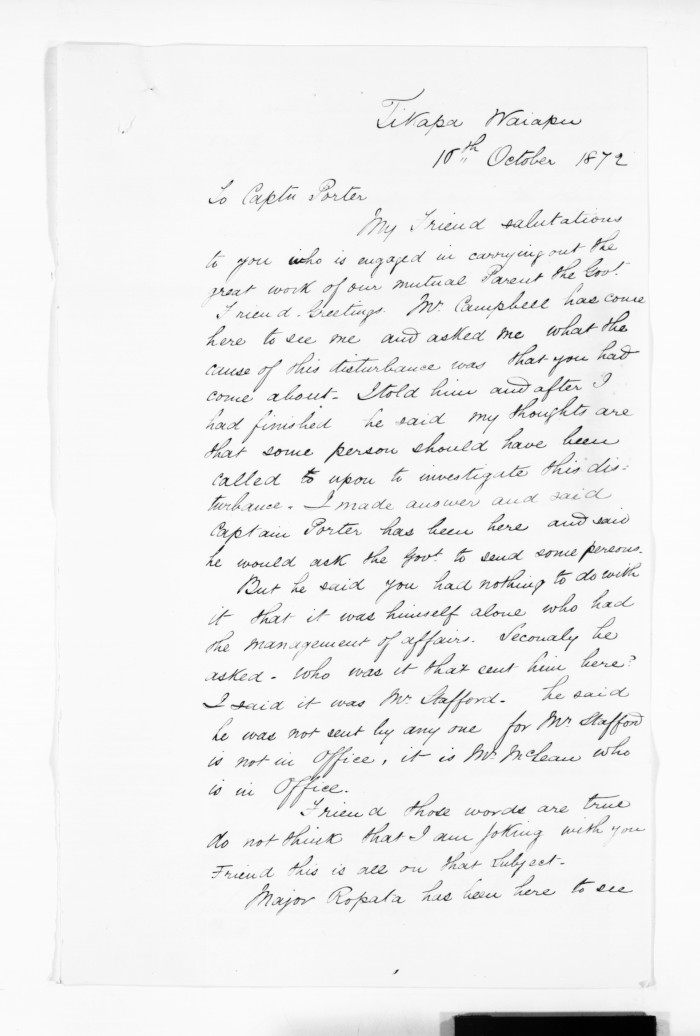 Tikapa Waiapu
10th October 1872
To Captn Porter
My Friend salutations
to you who is engaged in carrying out the
great work of our mutual Parent the Govt.
Friend. Greetings. Mr. Campbell has come
here to see me and asked me what the
cause of this disturbance was that you had
come about - I told him and after I
had finished he said my thoughts are
that some person should have been
called to upon to investigate this dis=
turbance. I made answer and said
Captain Porter has been here and said
he would ask the Govt. to send some persons.
But he said you had nothing to do with
it that it was himself alone who had
the management of affairs. Secondly he
asked - who was it that sent him here?
I said it was Mr. Stafford. he said
he was not sent by any one for Mr. Stafford
is not in Office, it is Mr. McLean who
is in Office.
Friend those words are true
do not think that I am joking with you
Friend this is all on that subject -
Major Ropata has been here to see